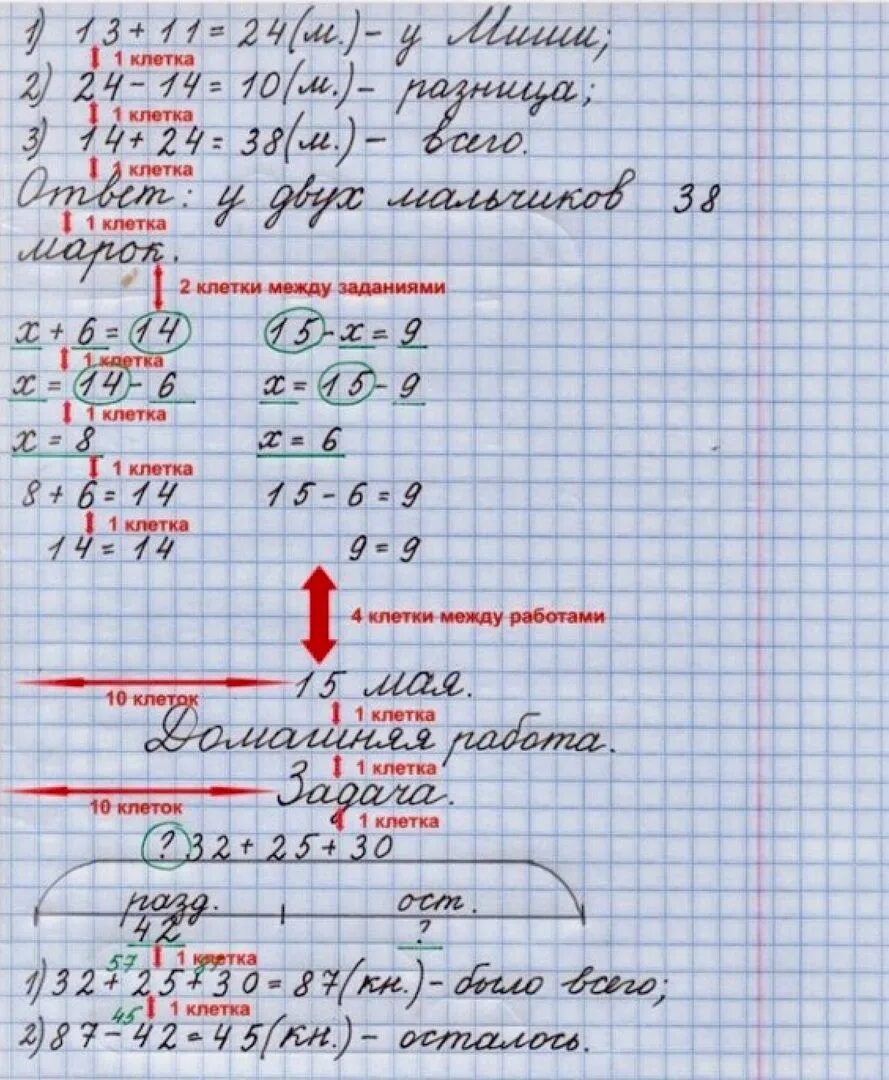 1) 13 + 11 = 24 (м.) - у Миши;
1 клетка
2) 24 - 14 = 10 (м.) - разница;
1 клетка
3) 14 + 24 = 38 (м.) - всего.
1 клетка
Ответ: у двух мальчиков 38
1 клетка
марок.
2 клетки между заданиями
x + 6 = 14 15 - x = 9
1 клетка
x = 14 - 6 x = 15 - 9
1 клетка
x = 8 x = 6
1 клетка
8 + 6 = 14 15 - 6 = 9
1 клетка
14 = 14 9 = 9
4 клетки между работами
15 мая.
10 клеток 1 клетка
Домашняя работа.
1 клетка
Задача.
10 клеток 1 клетка
? 32 + 25 + 30
разд. ост.
42 ?
1 клетка
57
1) 32 + 25 + 30 = 87 (кн.) - было всего;
1 клетка
45
2) 87 - 42 = 45 (кн.) - осталось.